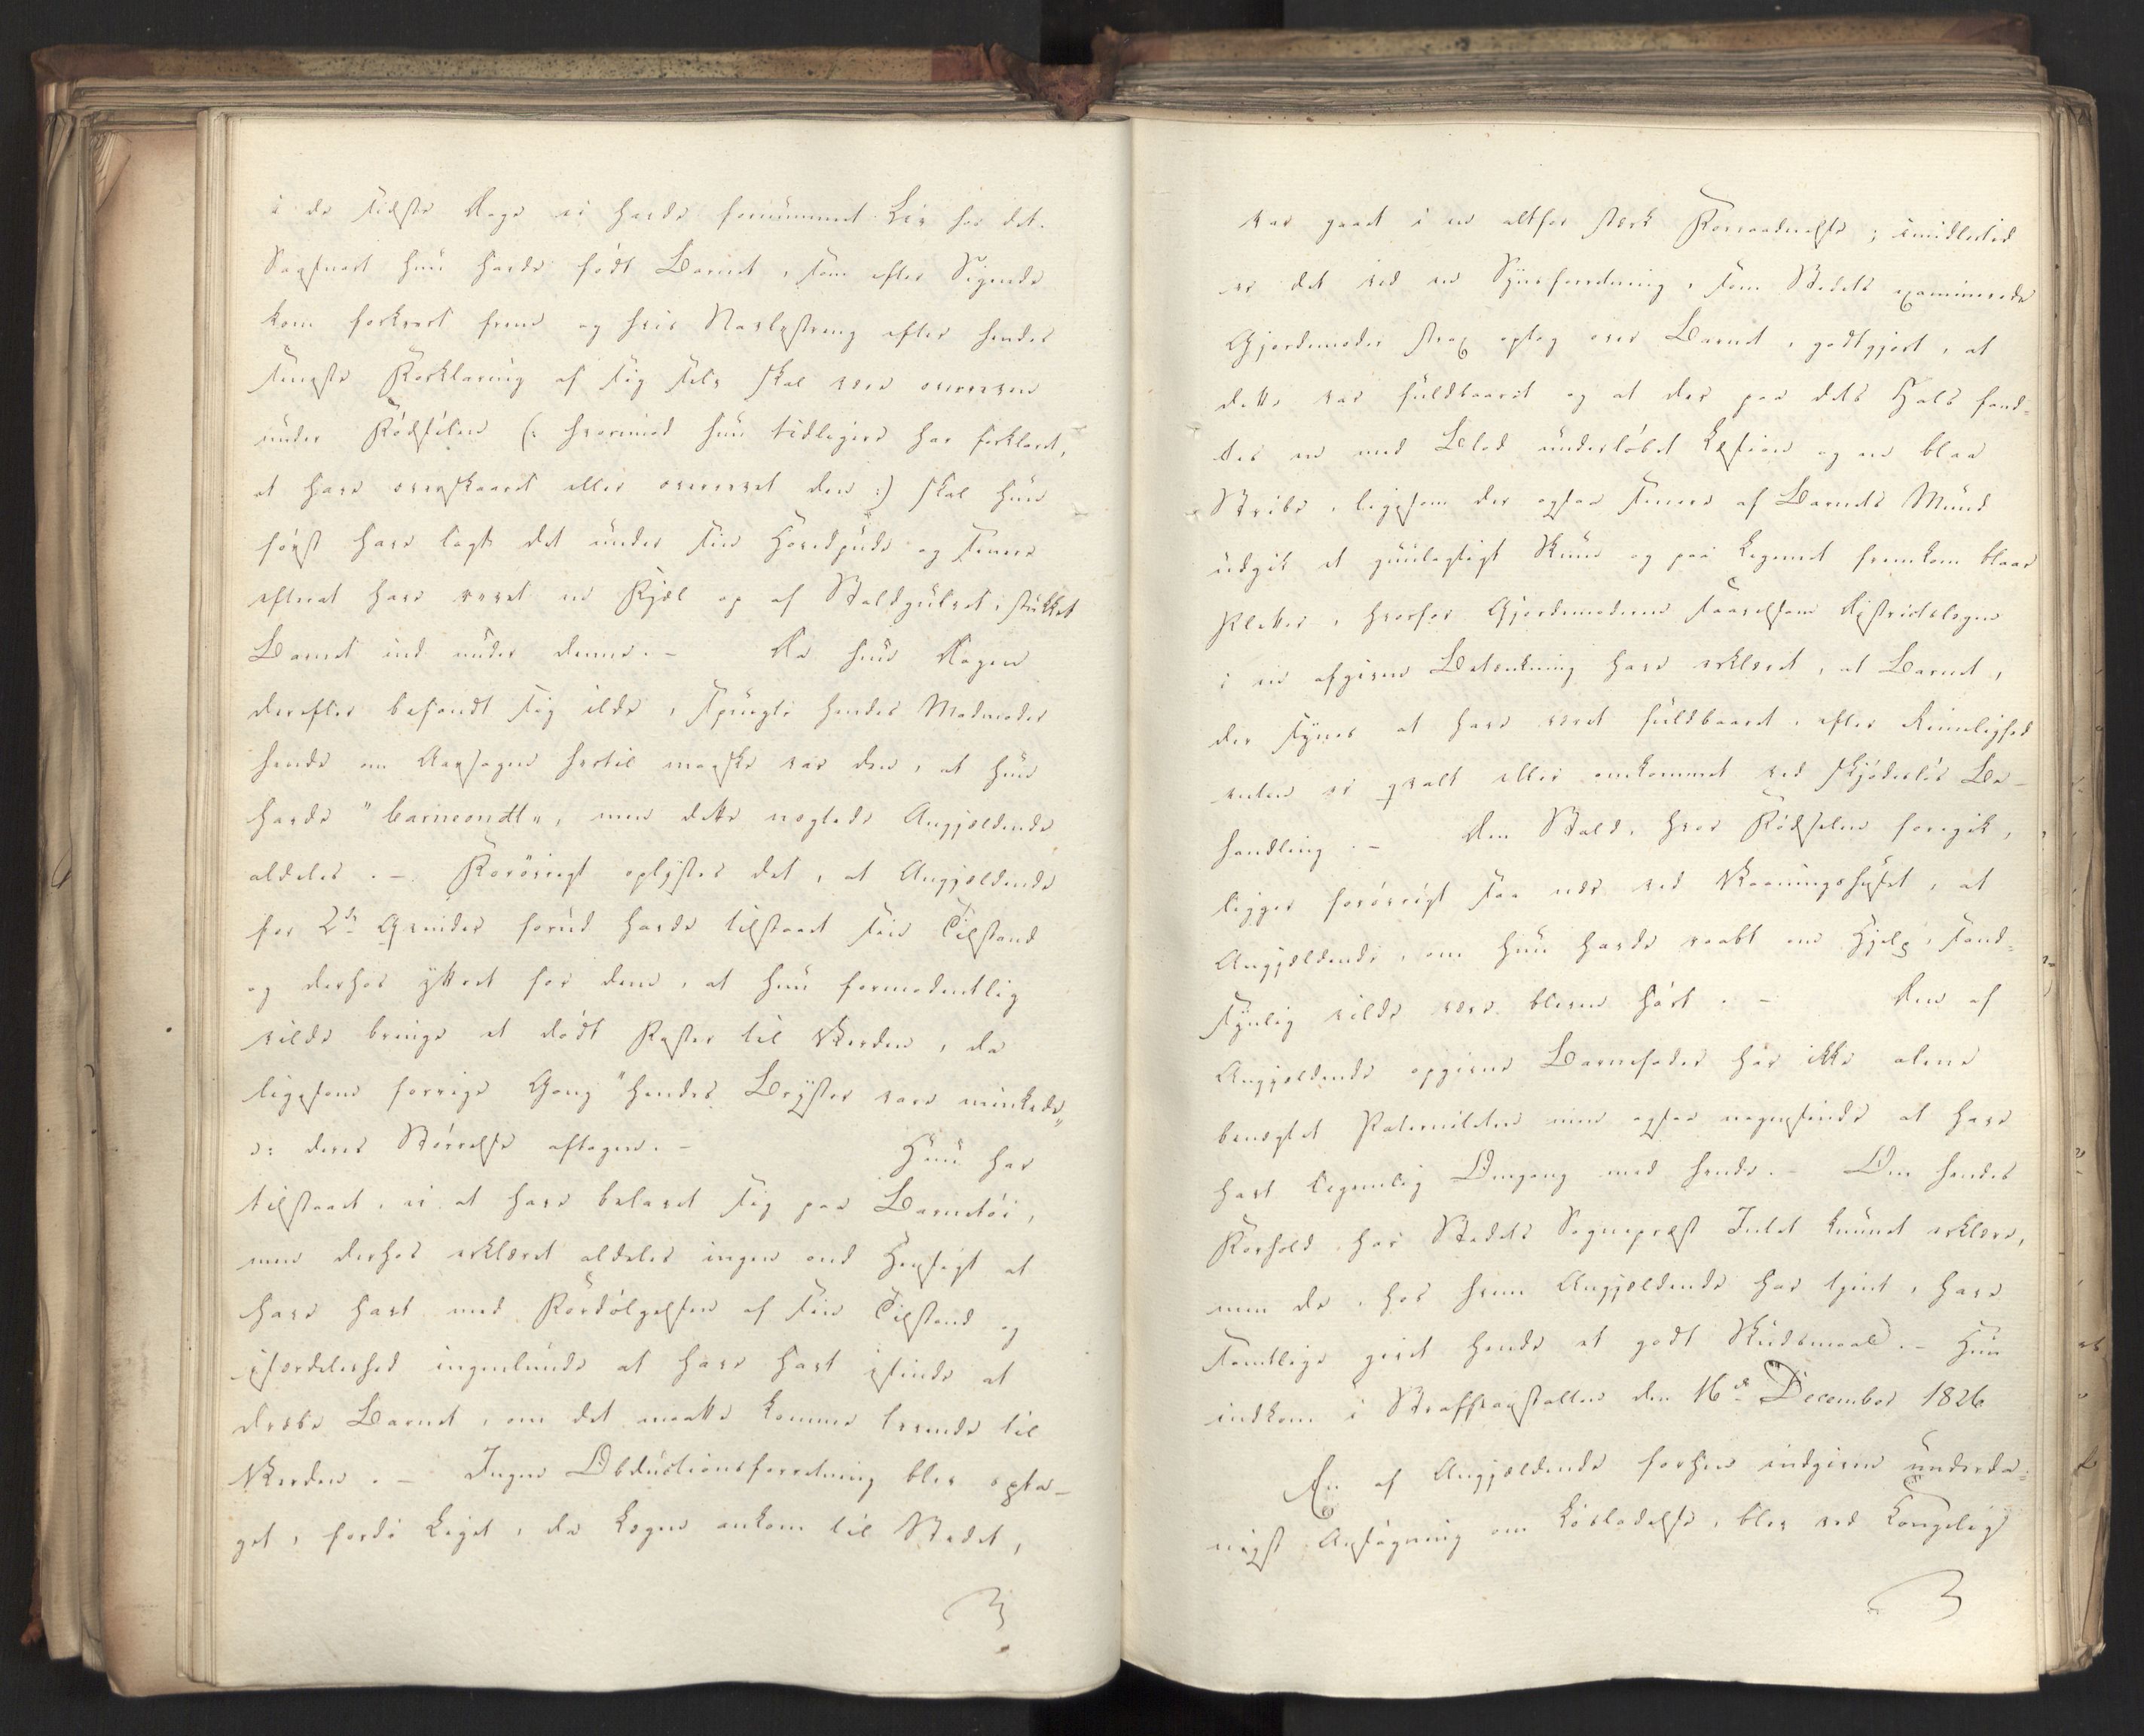 i de sidste Dage ei havde fornummet Liv hos det.
Saasnart hun havde født Barnet, som efter Sigende
kom forkert frem og hvis Navlestreng efter hendes
seneste Forklaring af sig selv skal være overreven
under Fødselen (: hvorimod hun tidligere har forklaret,
at have overskaaret eller overrevet den :) skal hun
først have lagt det under sin Hovedpude og senere
efterat have revet en Fjæl op af Staldgulvet, stukket
Barnet ind under denne. – Da hun Dagen
derefter befandt sig ilde, spurgte hendes Madmoder
hende om Aarsagen hertil maaskee var den, at hun
havde "barneondt", men dette nægtede Angjældende
aldeles. – Forøvrigt oplystes det, at Angjældende
for 2de Qvinder forud havde tilstaaet sin Tilstand
og derhos yttret for dem, at hun formodentlig
vilde bringe et dødt Foster til Verden, da
ligesom forrige Gang "hendes Bryster vare minkede"
ɔ: deres Størrelse aftagen. – Hun har
tilstaaet, ei at have belavet sig paa Barnetøi,
men derhos erklæret aldeles ingen ond Hensigt at
have havt med Fordølgelsen af sin Tilstand og
isærdeleshed ingenlunde at have havt isinde at
dræbe Barnet, om det maatte komme levende til
Verden. – Ingen Obductionsforretning blev opta-
get, fordi Liget, da Lægen ankom til Stedet,
var gaaet i en altfor stærk Forraadnelse; imidlertid
er det ved en Synsforretning, som Stedets examinerede
Gjordemoder strax optog over Barnet, godtgjort, at
dette var fuldbaaret og at der paa dets Hals fand-
tes en med Blod underløbet Læsion og en blaa
Stribe, ligesom der ogsaa senere af Barnets Mund
udgik et guulagtigt Skum og paa Legemet fremkom blaae
Pletter, hvorfor Gjordemoderen saavelsom Districtslægen
i en afgiven Betænkning have erklæret, at Barnet,
der synes at have været fuldbaaret, efter Rimelighed
enten er qvalt eller omkommet ved skjødesløs Be-
handling. – Den Stald, hvor Fødselen foregik,
ligger forøvrigt saa nær ved Vaaningshuset, at
Angjældende, om hun havde raabt om Hjelp, sand-
synlig vilde være bleven hørt. – Den af
Angjældende opgivne Barnefader har ikke alene
benegtet Paterniteten men ogsaa nogensinde at have
havt legemlig Omgang med hende. – Om hendes
Forhold har Stedets Sognepræst Intet kunnet erklære,
men de, hos hvem Angjældende har tjent, have
samtlige givet hende et godt Skudsmaal. – Hun
indkom i Straffeanstalten den 16de December 1826
En af Angjældende forhen indgiven underda-
nigst Ansøgning om Løsladelse, blev ved Kongelig